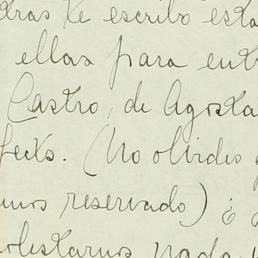 dras te escribo esta
ellas para ent
Castro, de Agosta
fects. (No olvides
mos reservado) ¿
olestarnos nada